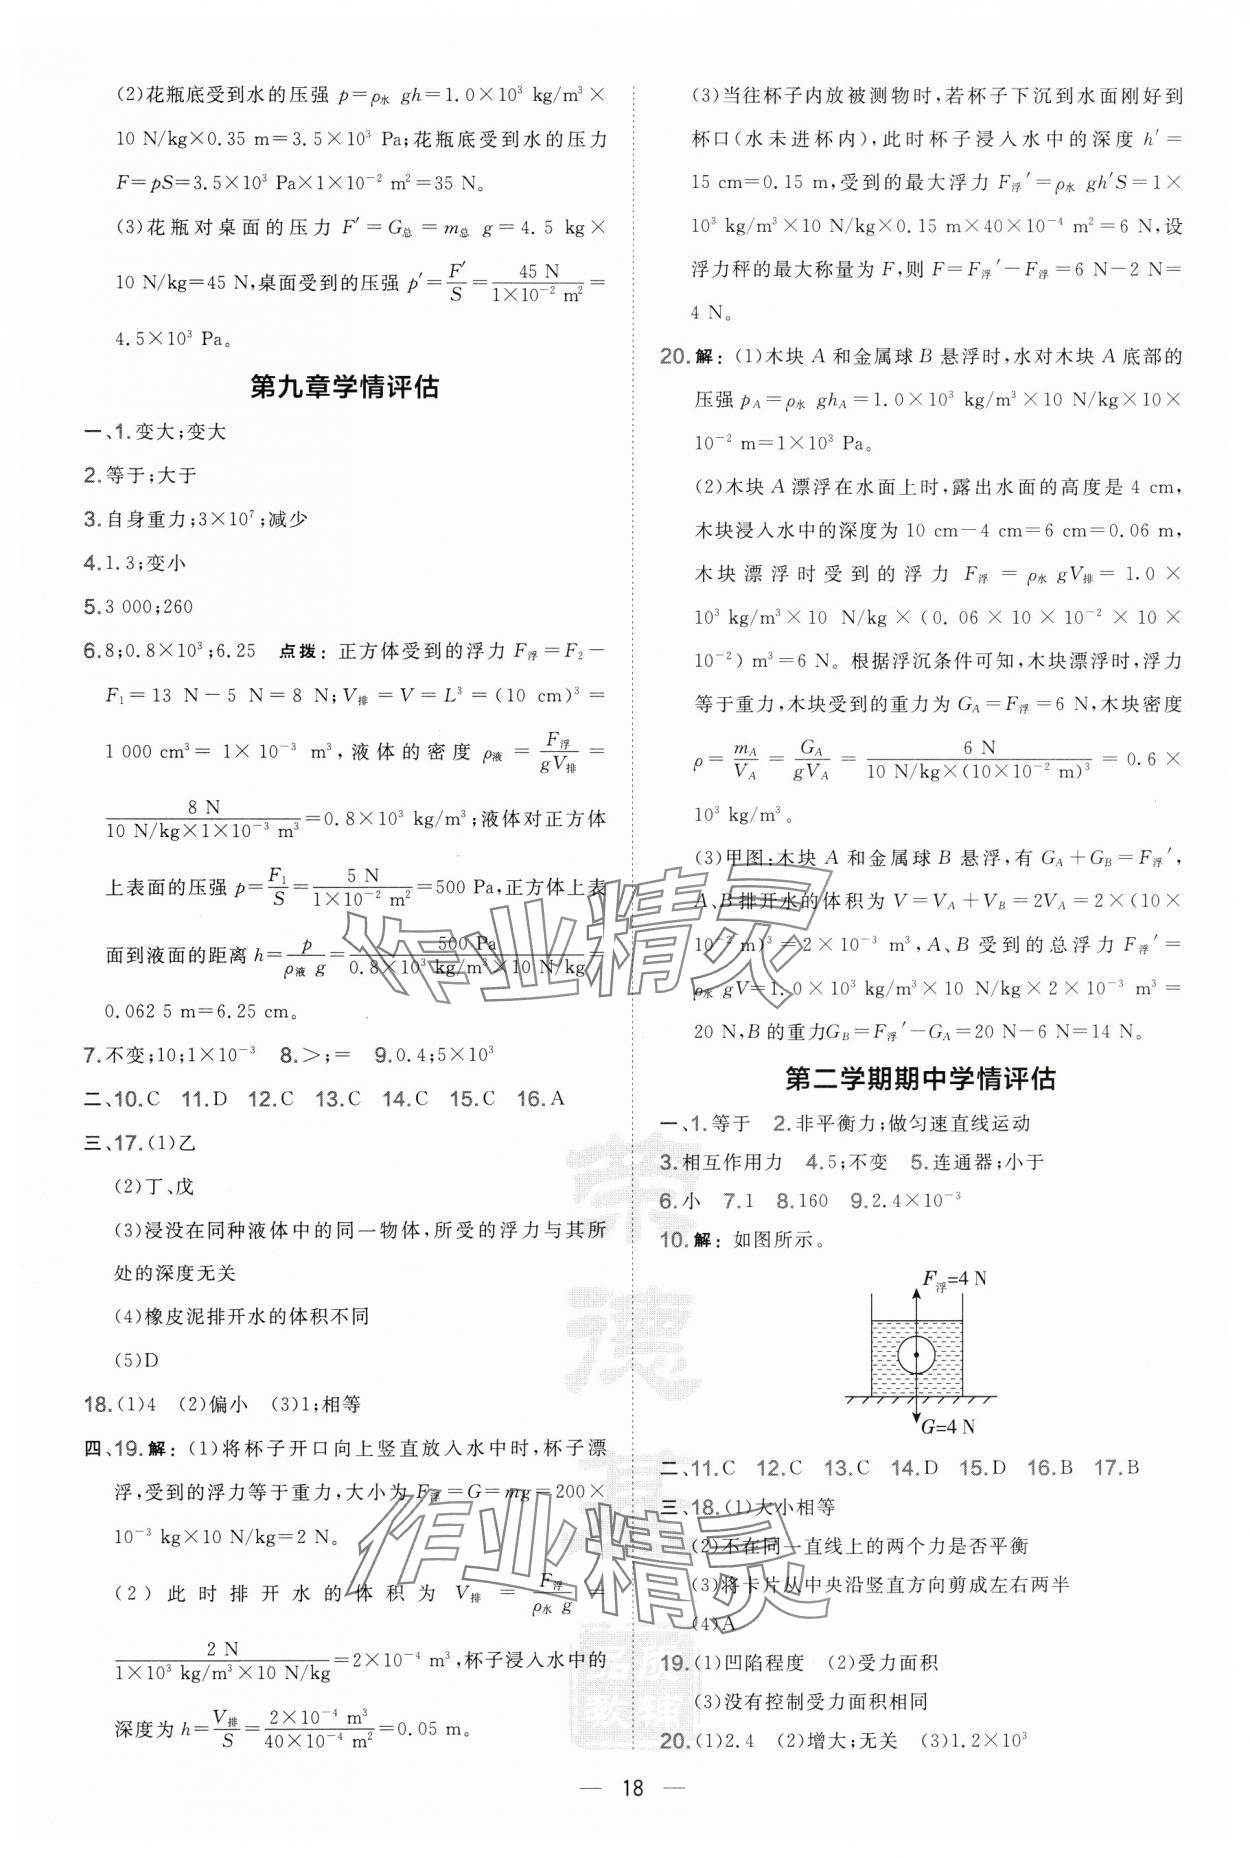 (2)花瓶底受到水的压强 p=ρ水 gh=1.0×10³ kg/m³×
10 N/kg×0.35 m=3.5×10³ Pa;花瓶底受到水的压力
F=pS=3.5×10³ Pa×1×10⁻² m²=35 N。
(3)花瓶对桌面的压力 F′=G总=m总 g=4.5 kg×
10 N/kg=45 N,桌面受到的压强 p′=F′/S=45 N/(1×10⁻² m²)=
4.5×10³ Pa。
第九章学情评估
一、1.变大;变大
2.等于;大于
3.自身重力;3×10⁷;减少
4.1.3;变小
5.3 000;260
6.8;0.8×10³;6.25 点拨:正方体受到的浮力 F浮=F₂-
F₁=13 N-5 N=8 N;V排=V=L³=(10 cm)³=
1 000 cm³=1×10⁻³ m³,液体的密度 ρ液=F浮/gV排=
8 N/(10 N/kg×1×10⁻³ m³)=0.8×10³ kg/m³;液体对正方体
上表面的压强 p=F₁/S=5 N/(1×10⁻² m²)=500 Pa,正方体上表
面到液面的距离 h=p/ρ液 g=500 Pa/(0.8×10³ kg/m³×10 N/kg)=
0.062 5 m=6.25 cm。
7.不变;10;1×10⁻³ 8.>;= 9.0.4;5×10³
二、10.C 11.D 12.C 13.C 14.C 15.C 16.A
三、17.(1)乙
(2)丁、戊
(3)浸没在同种液体中的同一物体,所受的浮力与其所
处的深度无关
(4)橡皮泥排开水的体积不同
(5)D
18.(1)4 (2)偏小 (3)1;相等
四、19.解:(1)将杯子开口向上竖直放入水中时,杯子漂
浮,受到的浮力等于重力,大小为 F浮=G=mg=200×
10⁻³ kg×10 N/kg=2 N。
(2)此时排开水的体积为 V排=F浮/ρ水 g=
2 N/(1×10³ kg/m³×10 N/kg)=2×10⁻⁴ m³,杯子浸入水中的
深度为 h=V排/S=2×10⁻⁴ m³/(40×10⁻⁴ m²)=0.05 m。
(3)当往杯子内放被测物时,若杯子下沉到水面刚好到
杯口(水未进杯内),此时杯子浸入水中的深度 h′=
15 cm=0.15 m,受到的最大浮力 F浮′=ρ水 gh′S=1×
10³ kg/m³×10 N/kg×0.15 m×40×10⁻⁴ m²=6 N,设
浮力秤的最大称量为 F,则 F=F浮′-F浮=6 N-2 N=
4 N。
20.解:(1)木块 A 和金属球 B 悬浮时,水对木块 A 底部的
压强 pA=ρ水 ghA=1.0×10³ kg/m³×10 N/kg×10×
10⁻² m=1×10³ Pa。
(2)木块 A 漂浮在水面上时,露出水面的高度是 4 cm,
木块浸入水中的深度为 10 cm-4 cm=6 cm=0.06 m,
木块漂浮时受到的浮力 F浮=ρ水 gV排=1.0×
10³ kg/m³×10 N/kg×(0.06×10×10⁻²×10×
10⁻²) m³=6 N。根据浮沉条件可知,木块漂浮时,浮力
等于重力,木块受到的重力为 GA=F浮=6 N,木块密度
ρ=mA/VA=GA/gVA=6 N/(10 N/kg×(10×10⁻² m)³)=0.6×
10³ kg/m³。
(3)甲图:木块 A 和金属球 B 悬浮,有 GA+GB=F浮′,
A、B排开水的体积为 V=VA+VB=2VA=2×(10×
10⁻² m)³=2×10⁻³ m³,A、B 受到的总浮力 F浮′=
ρ水 gV=1.0×10³ kg/m³×10 N/kg×2×10⁻³ m³=
20 N,B 的重力GB=F浮′-GA=20 N-6 N=14 N。
第二学期期中学情评估
一、1.等于 2.非平衡力;做匀速直线运动
3.相互作用力 4.5;不变 5.连通器;小于
6.小 7.1 8.160 9.2.4×10⁻³
10.解:如图所示。
F浮=4 N
G=4 N
二、11.C 12.C 13.C 14.D 15.D 16.B 17.B
三、18.(1)大小相等
(2)不在同一直线上的两个力是否平衡
(3)将卡片从中央沿竖直方向剪成左右两半
(4)A
19.(1)凹陷程度 (2)受力面积
(3)没有控制受力面积相同
20.(1)2.4 (2)增大;无关 (3)1.2×10³
— 18 —
作业精灵
作业精灵
荣德基
品质
教辅